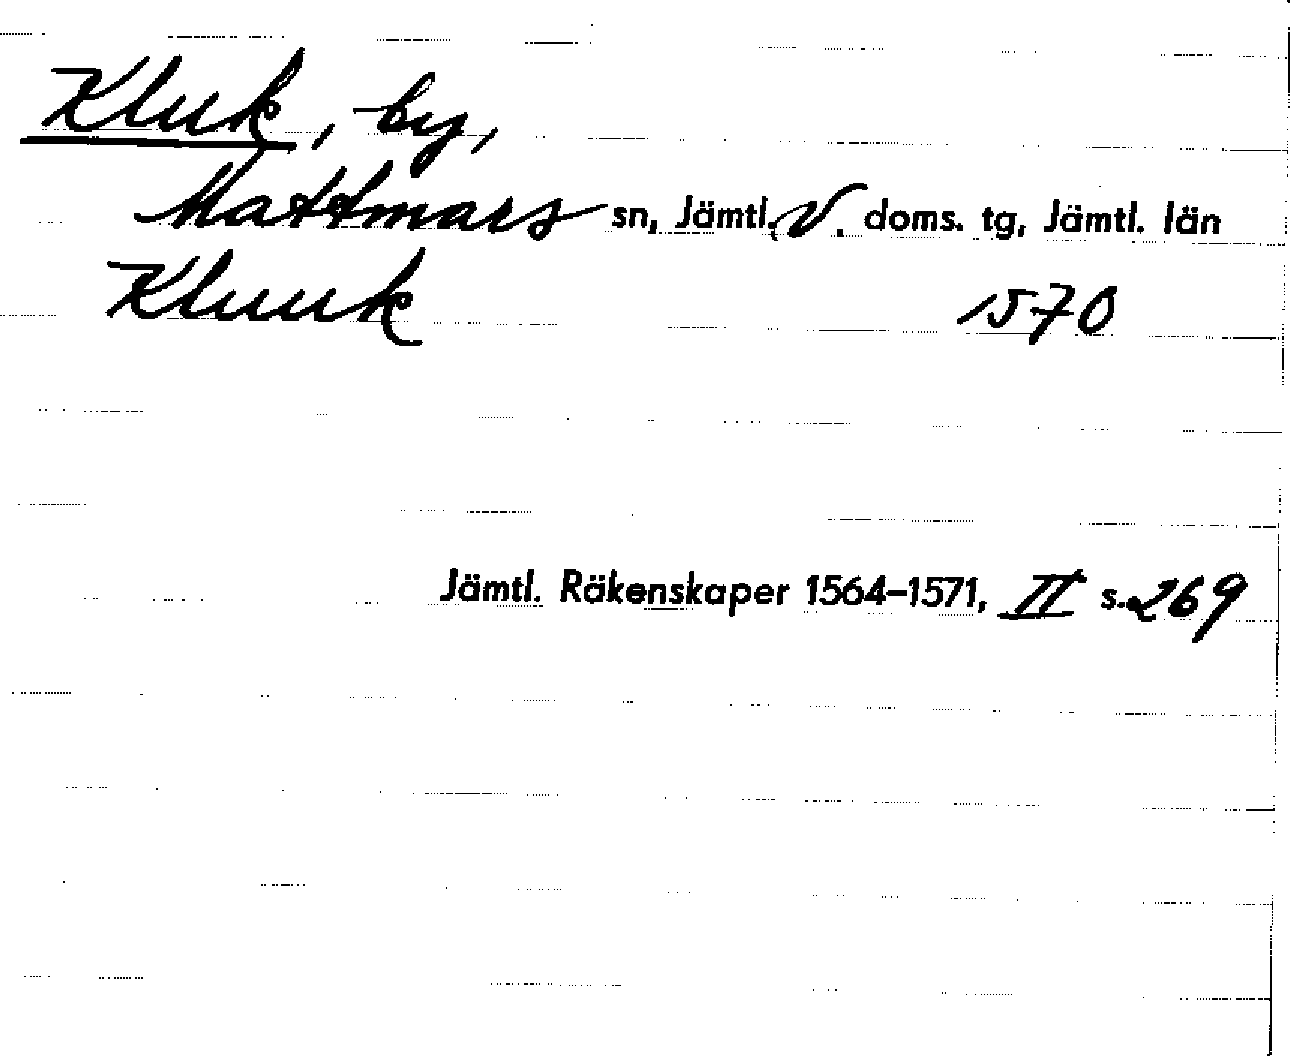 Kluk, by,
Mattmars sn, Jämtl. V. doms. tg, Jämtl. län
Kluuk 1570
Jämtl. Räkenskaper 1564–1571, II s. 269